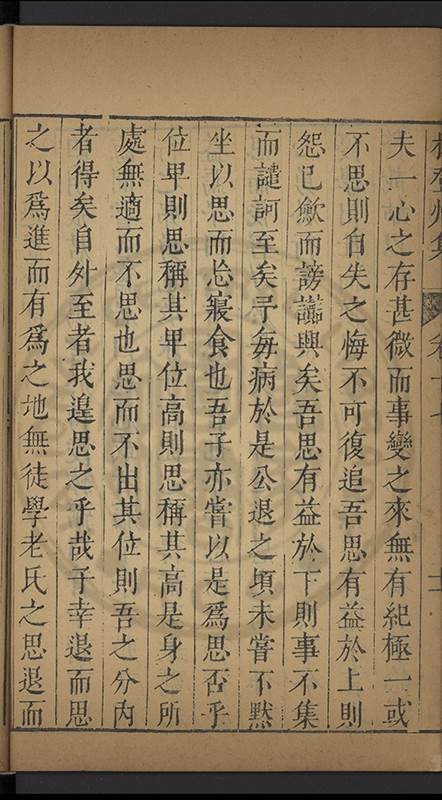 夫一心之存甚微而事變之來無有紀極一或
不思則自失之悔不可復追吾思有益於上則
怨已歛而謗讟興矣吾思有益於下則事不集
而譴訶至矣予每病於是公退之頃未嘗不黙
坐以思而忘寢食也吾子亦嘗以是爲思否乎
位卑則思稱其卑位高則思稱其高是身之所
處無適而不思也思而不出其位則吾之分內
者得矣自外至者我遑思之乎哉子幸退而思
之以爲進而有爲之地無徒學老氏之思退而